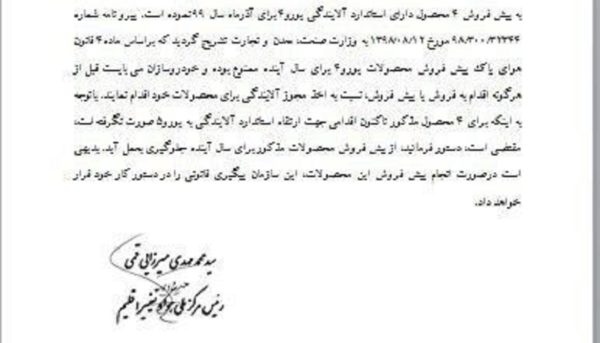 به پیش فروش ۴ محصول دارای استاندارد آلایندگی یورو۴ برای آذرماه سال ۹۹ نموده است. پیرو نامه شماره
۹۸/۳۰۰/۳۲۳۴۴ مورخ ۱۳۹۸/۰۸/۱۲ به وزارت صنعت، معدن و تجارت تشریح گردید که براساس ماده ۴ قانون
هوای پاک پیش فروش محصولات یورو۴ برای سال آینده ممنوع بوده و خودروسازان می بایست قبل از
هرگونه اقدام به فروش یا پیش فروش، نسبت به اخذ مجوز آلایندگی برای محصولات خود اقدام نمایند. باتوجه
به اینکه برای ۴ محصول مذکور تاکنون اقدامی جهت ارتقاء استاندارد آلایندگی به یورو۵ صورت نگرفته است،
مقتضی است، دستور فرمائید، از پیش فروش محصولات مذکور برای سال آینده جلوگیری بعمل آید. بدیهی
است درصورت انجام پیش فروش این محصولات، این سازمان پیگیری قانونی را در دستور کار خود قرار
خواهد داد.
سید محمد مهدی میرزایی قمی
رئیس مرکز ملی هوا و تغییر اقلیم